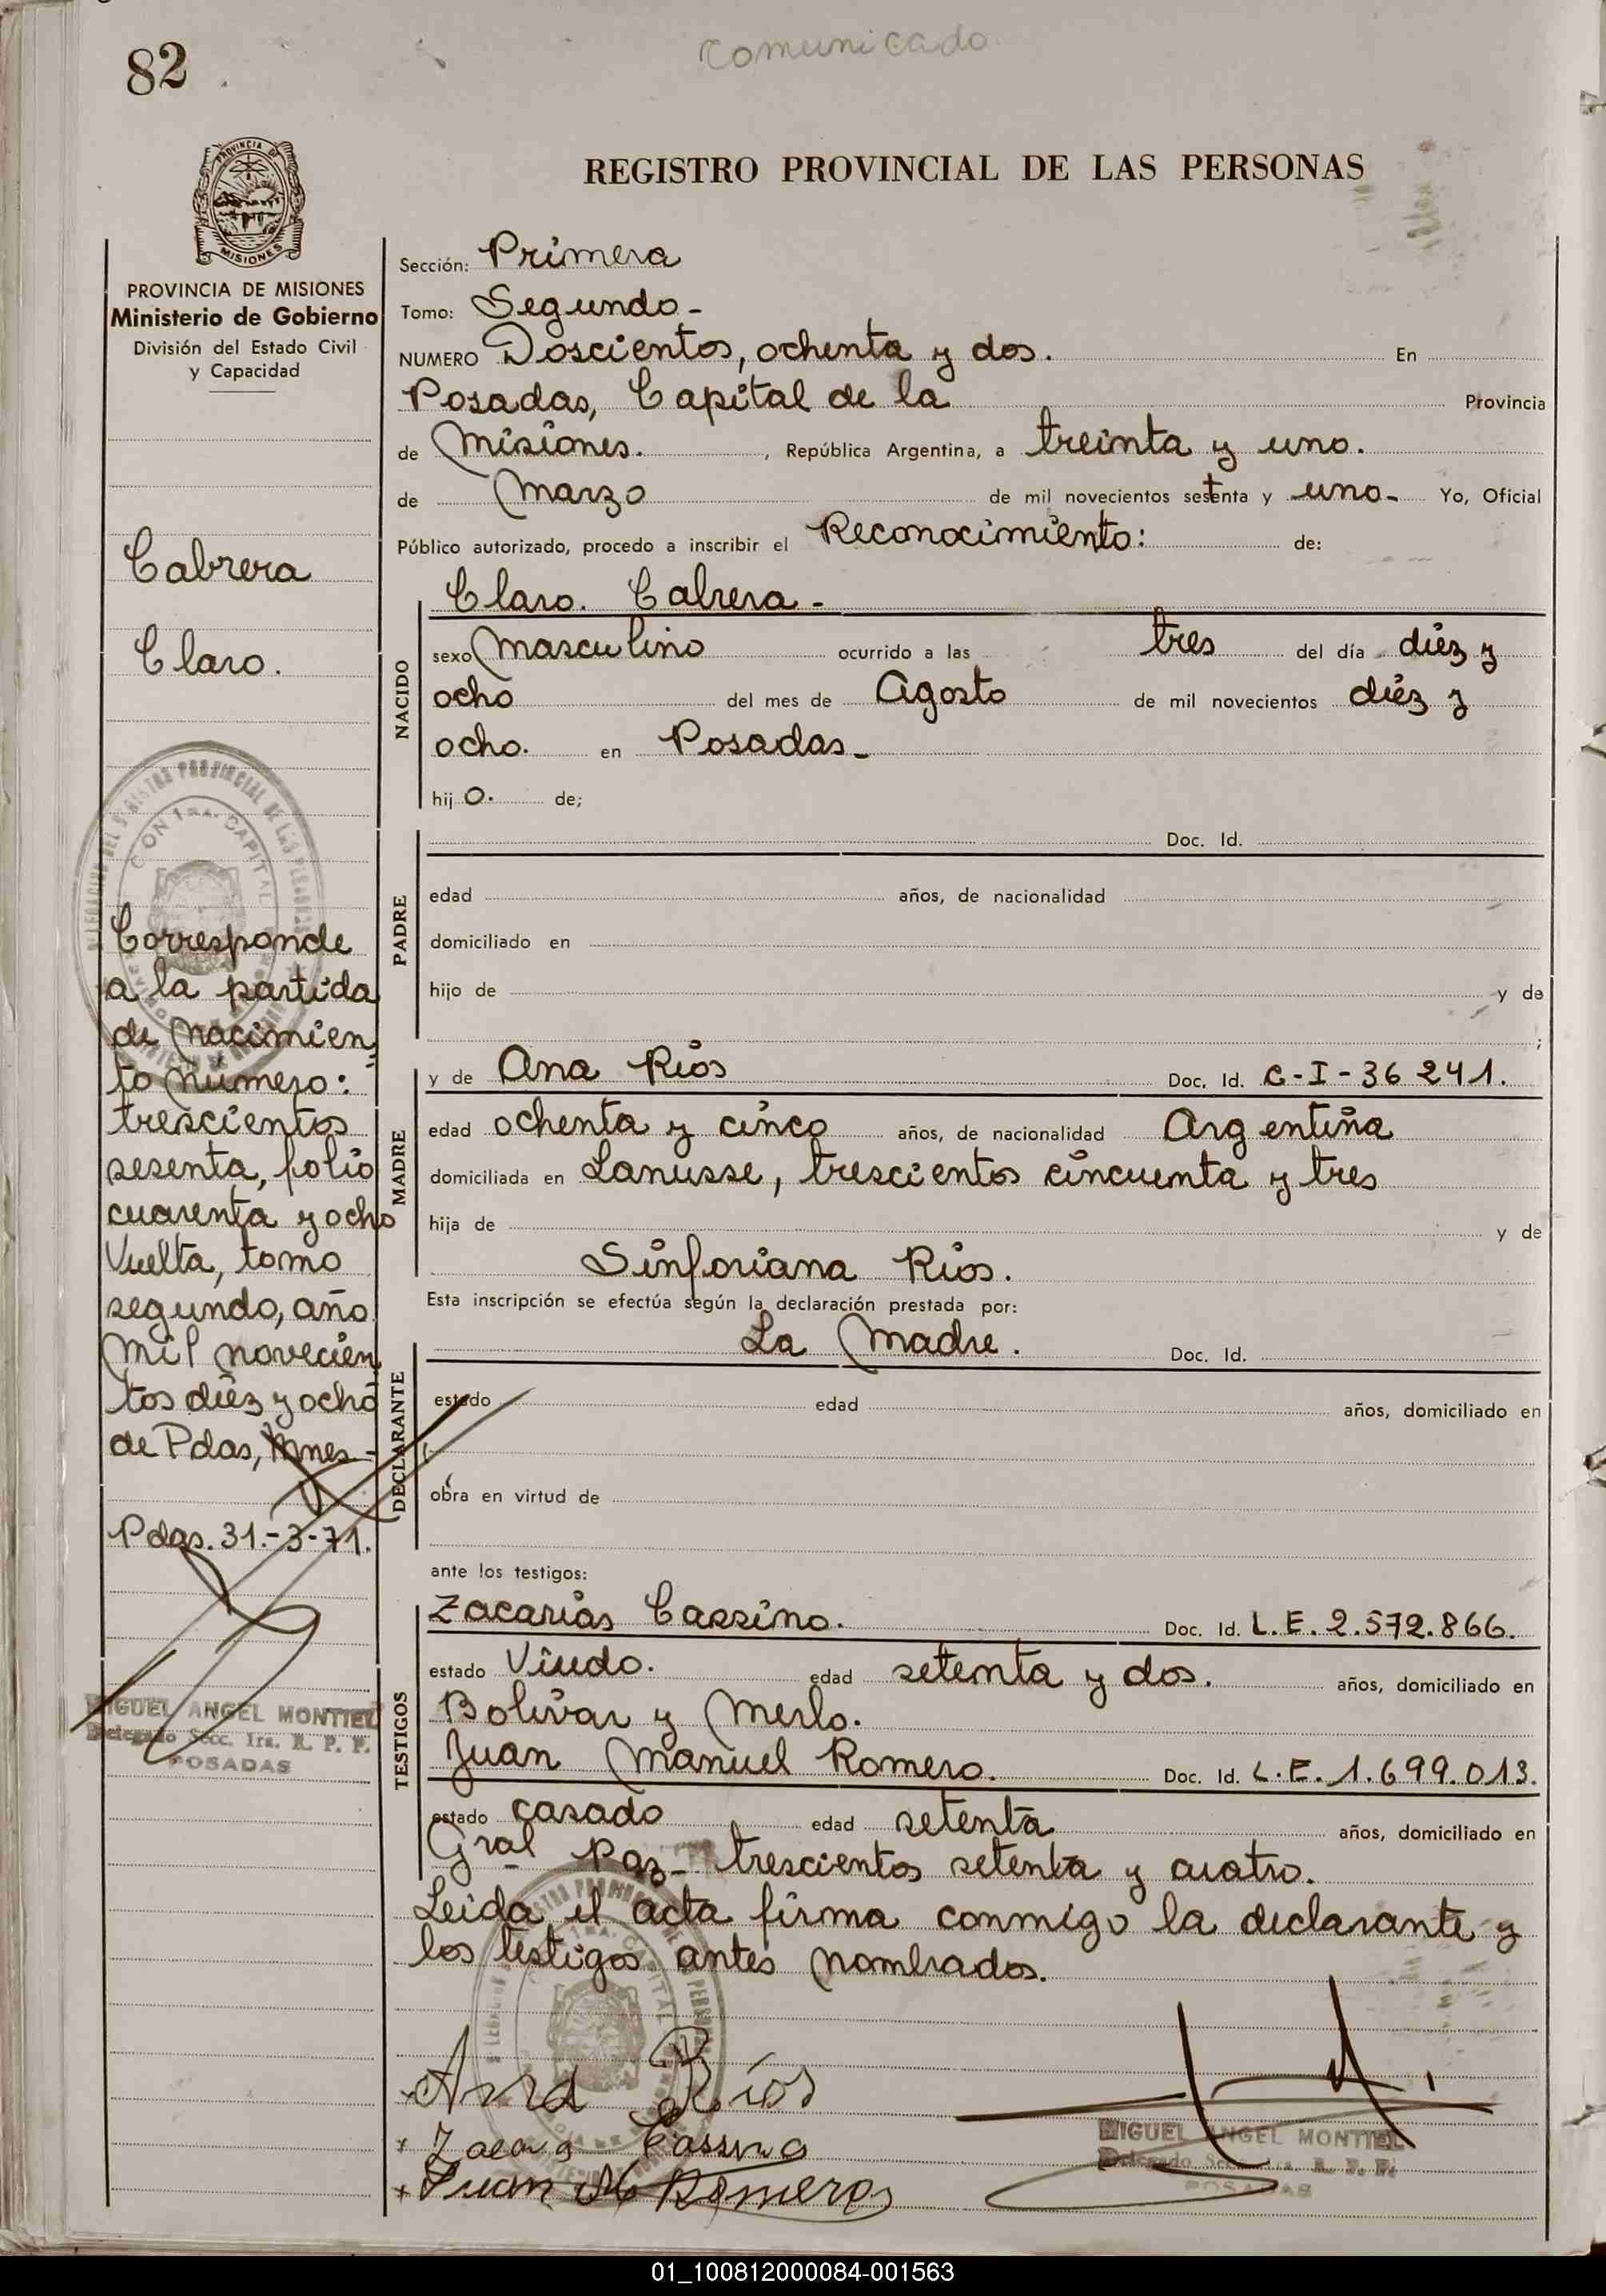 82
Comunicado
PROVINCIA DE
MISIONES
REGISTRO PROVINCIAL DE LAS PERSONAS
PROVINCIA DE MISIONES
Ministerio de Gobierno
División del Estado Civil
y Capacidad
Cabrera
Claro.
Corresponde
a la partida
de nacimien
to número:
trescientos
sesenta, folio
cuarenta y ocho
Vuelta, tomo
segundo, año
mil novecien
tos diéz y ocho
de Pdas, Mnes-
Pdas. 31.-3-71.
MIGUEL ANGEL MONTIEL
Delegado Secc. 1ra. R. P. P.
POSADAS
Sección: Primera
Tomo: Segundo-
NUMERO Doscientos, ochenta y dos. En
Posadas, Capital de la Provincia
de Misiones. , República Argentina, a treinta y uno.
de Marzo de mil novecientos setenta y uno- Yo, Oficial
Público autorizado, procedo a inscribir el Reconocimiento: de:
Claro. Cabrera-
NACIDO
sexo Masculino ocurrido a las tres del día diéz y
ocho del mes de Agosto de mil novecientos diéz y
ocho. en Posadas-
hij o. de;
PADRE
Doc. Id.
edad años, de nacionalidad
domiciliado en
hijo de y de
;
MADRE
y de Ana Rios Doc. Id. C-I-36 241.
edad ochenta y cinco años, de nacionalidad Argentina
domiciliada en Lanusse, trescientos cincuenta y tres
hija de y de
Sinforiana Rios.
Esta inscripción se efectúa según la declaración prestada por:
DECLARANTE
La Madre. Doc. Id.
estado edad años, domiciliado en
obra en virtud de
ante los testigos:
TESTIGOS
Zacarias Cassino. Doc. Id. L.E. 2.572.866.
estado Viudo. edad setenta y dos. años, domiciliado en
Bolivar y Merlo.
Juan Manuel Romero. Doc. Id. L.E. 1.699.013.
estado casado edad setenta años, domiciliado en
Gral Paz- trescientos setenta y cuatro.
Leida el acta firma conmigo la declarante y
los testigos antes nombrados.
Ana Ríos
Cassino
Juan M Romero
MIGUEL ANGEL MONTIEL
POSADAS
01_100812000084-001563